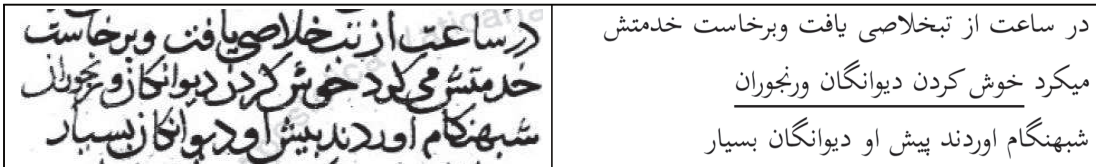 در ساعت از تبخلاصی یافت وبرخاست خدمتش
میکرد خوش کردن دیوانگان ورنجوران
شبهنگام اوردند پیش او دیوانگان بسیار
در ساعت از تب خلاصی یافت وبرخاست
خدمتش می کرد خوش کردن دیوانکان ورنجوران
شبهنکام اوردند پیش او دیوانکان بسیار